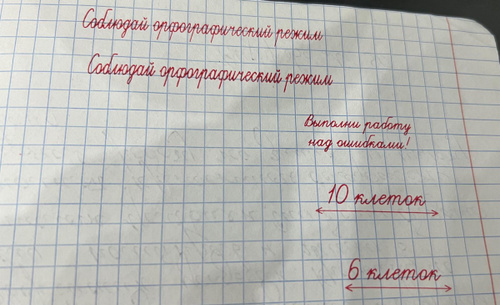 Соблюдай орфографический режим
Соблюдай орфографический режим
Выполни работу
над ошибками!
10 клеток
6 клеток